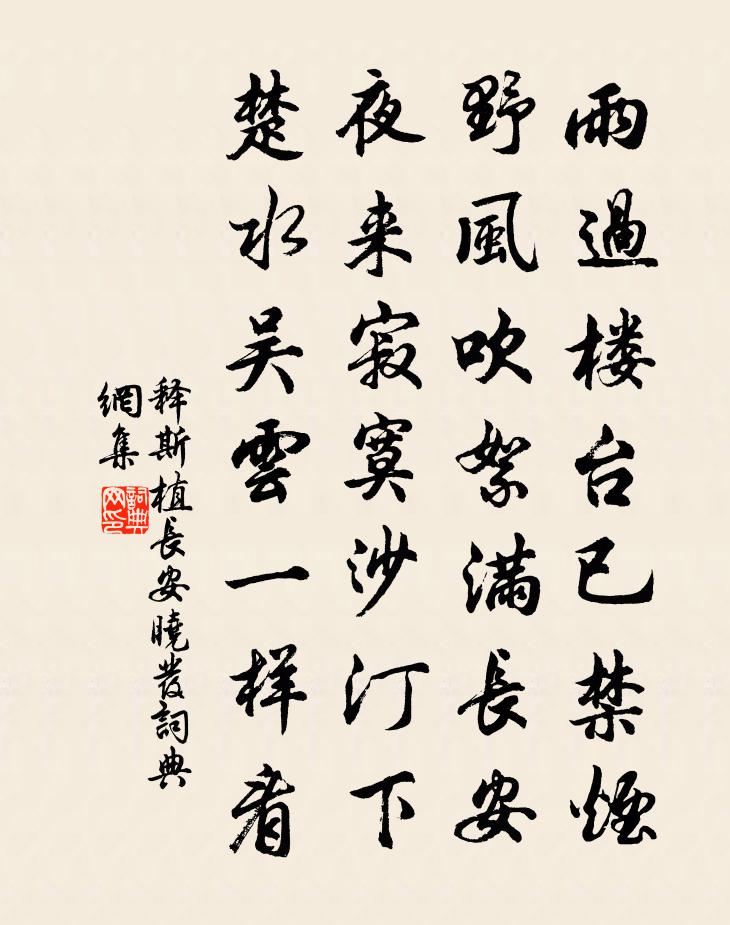 雨過楼台已禁煙
野風吹絮滿長安
夜来寂寞沙汀下
楚水吴雲一样看
释斯植長安曉發詞典
網集
詞典
网印